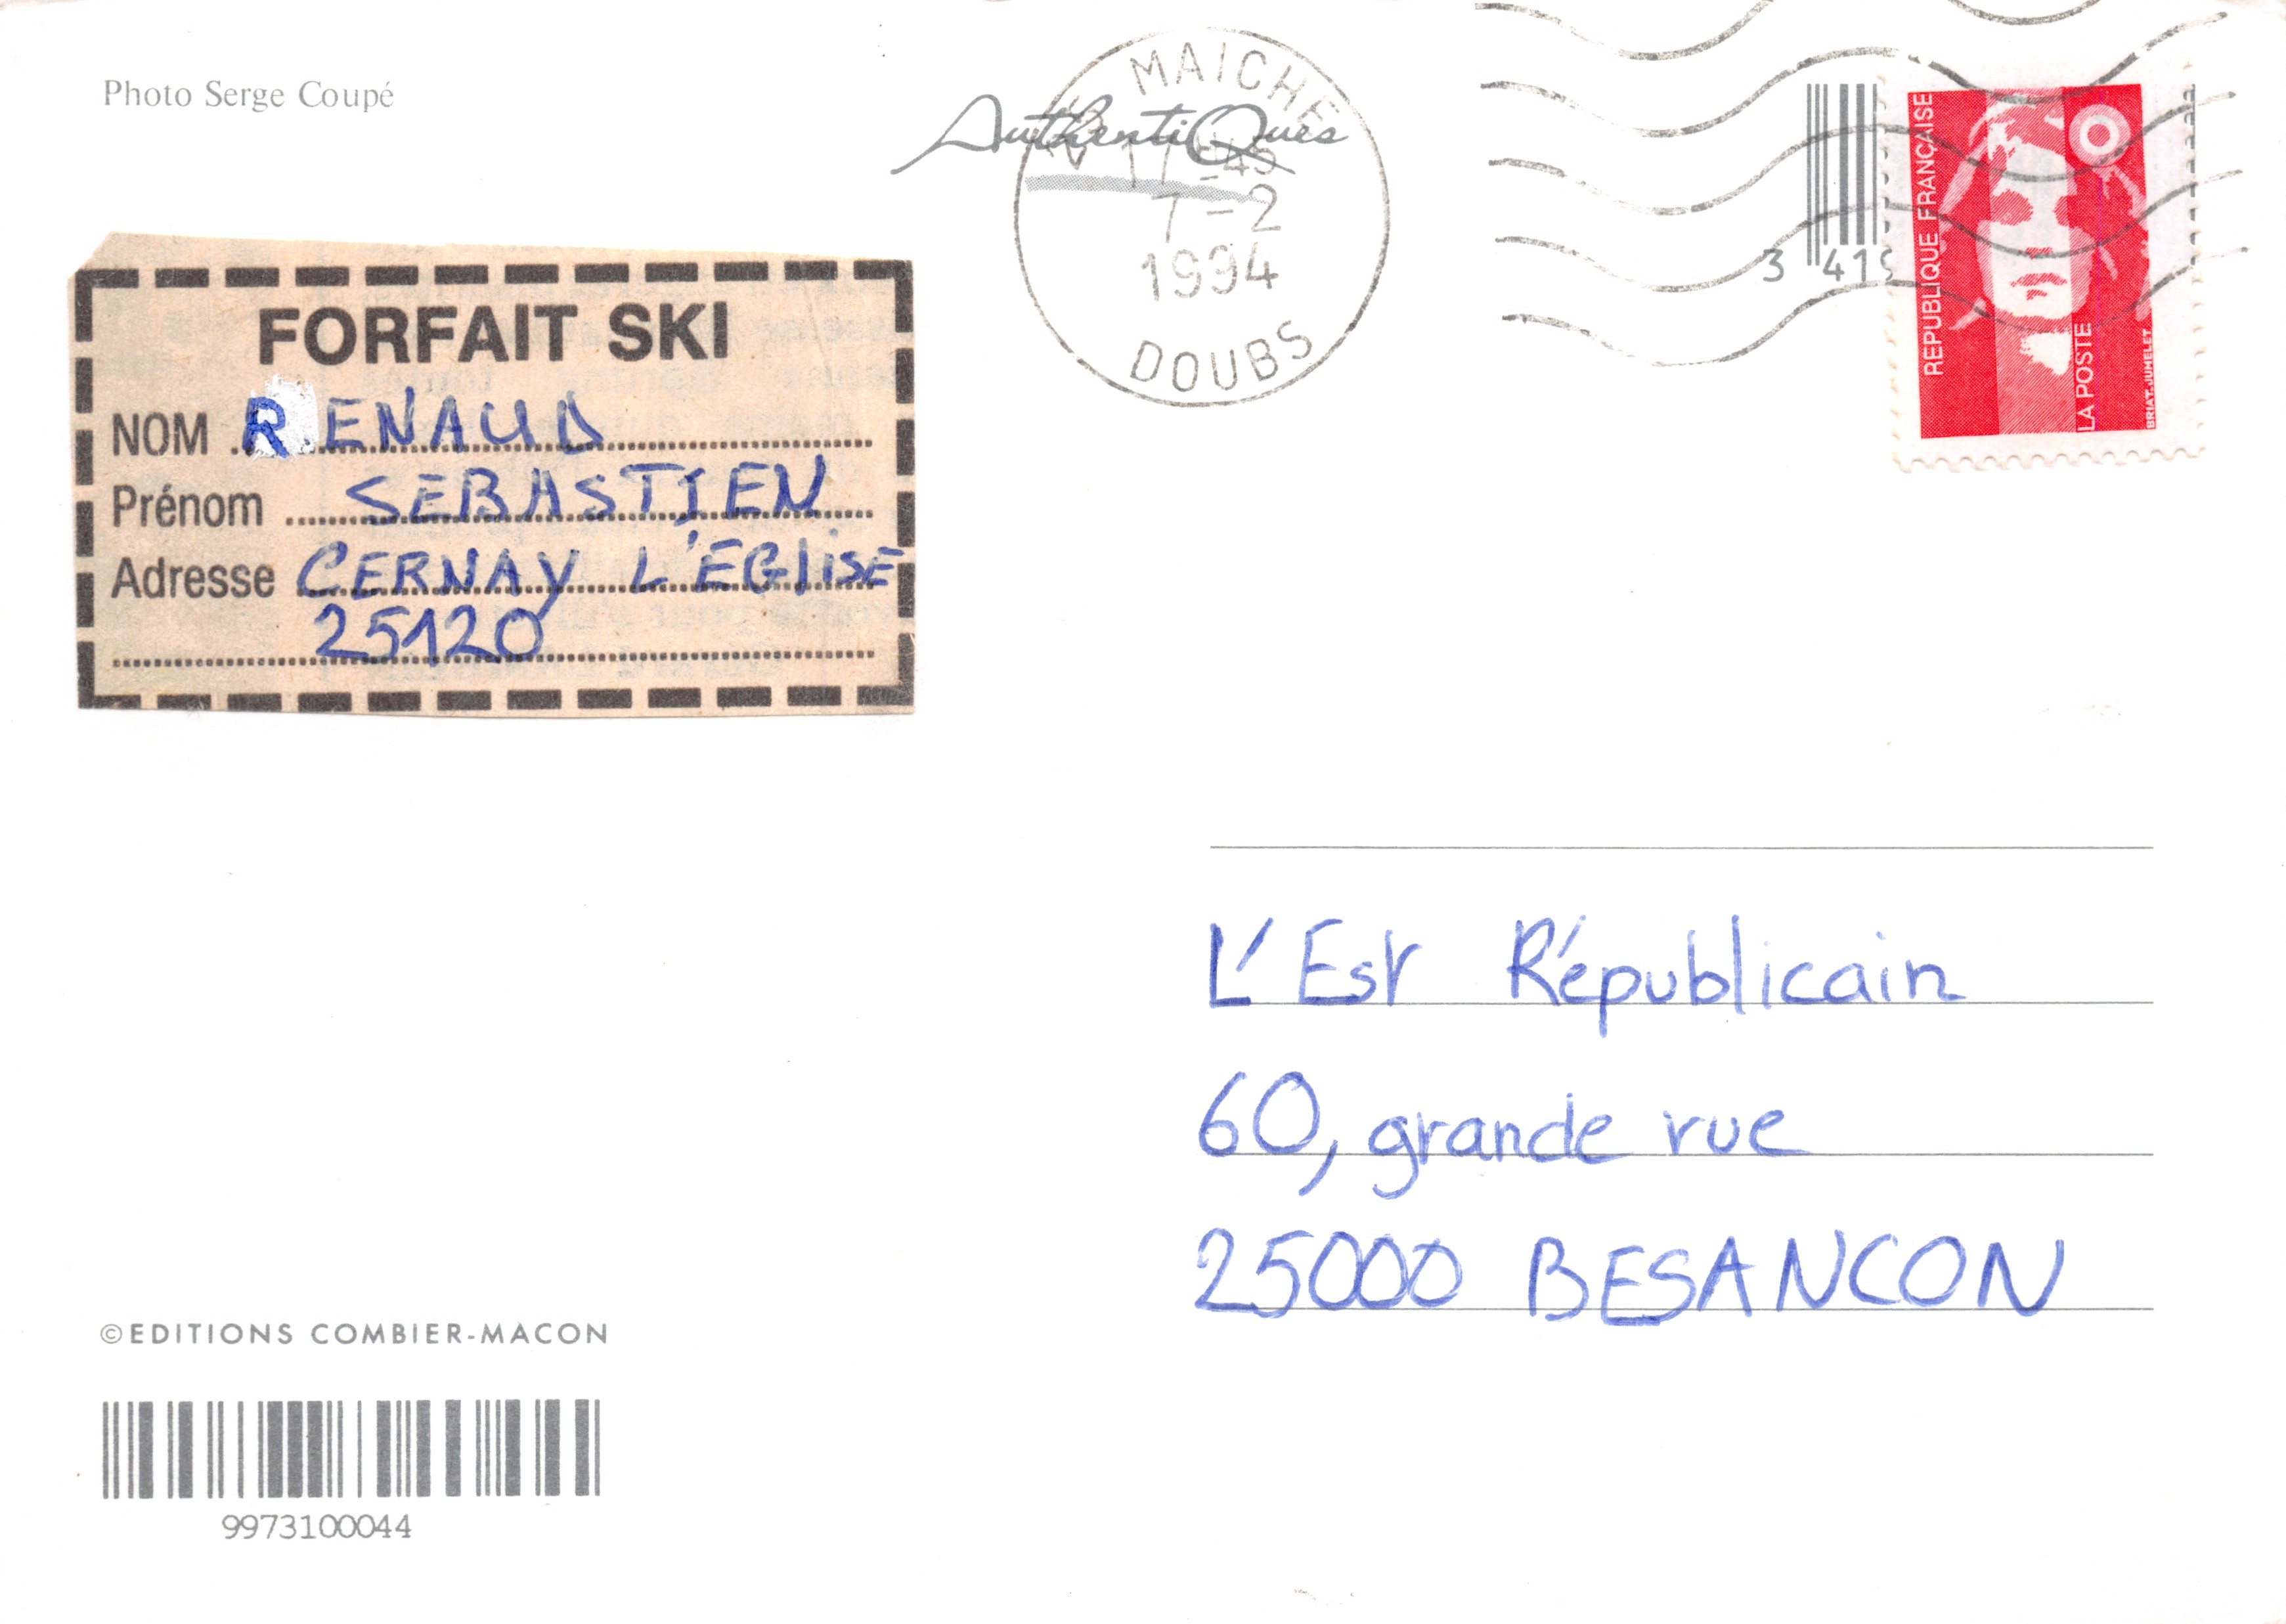 Photo Serge Coupé
AuthentiQues
MAICHE
17-45
7-2
1994
DOUBS
3 419
REPUBLIQUE FRANÇAISE
LA POSTE
BRIAT-JUMELET
FORFAIT SKI
NOM RENAUD
Prénom SEBASTIEN
Adresse CERNAY L'EGLISE
25120
L'Est Républicain
60, grande rue
25000 BESANCON
©EDITIONS COMBIER-MACON
9973100044